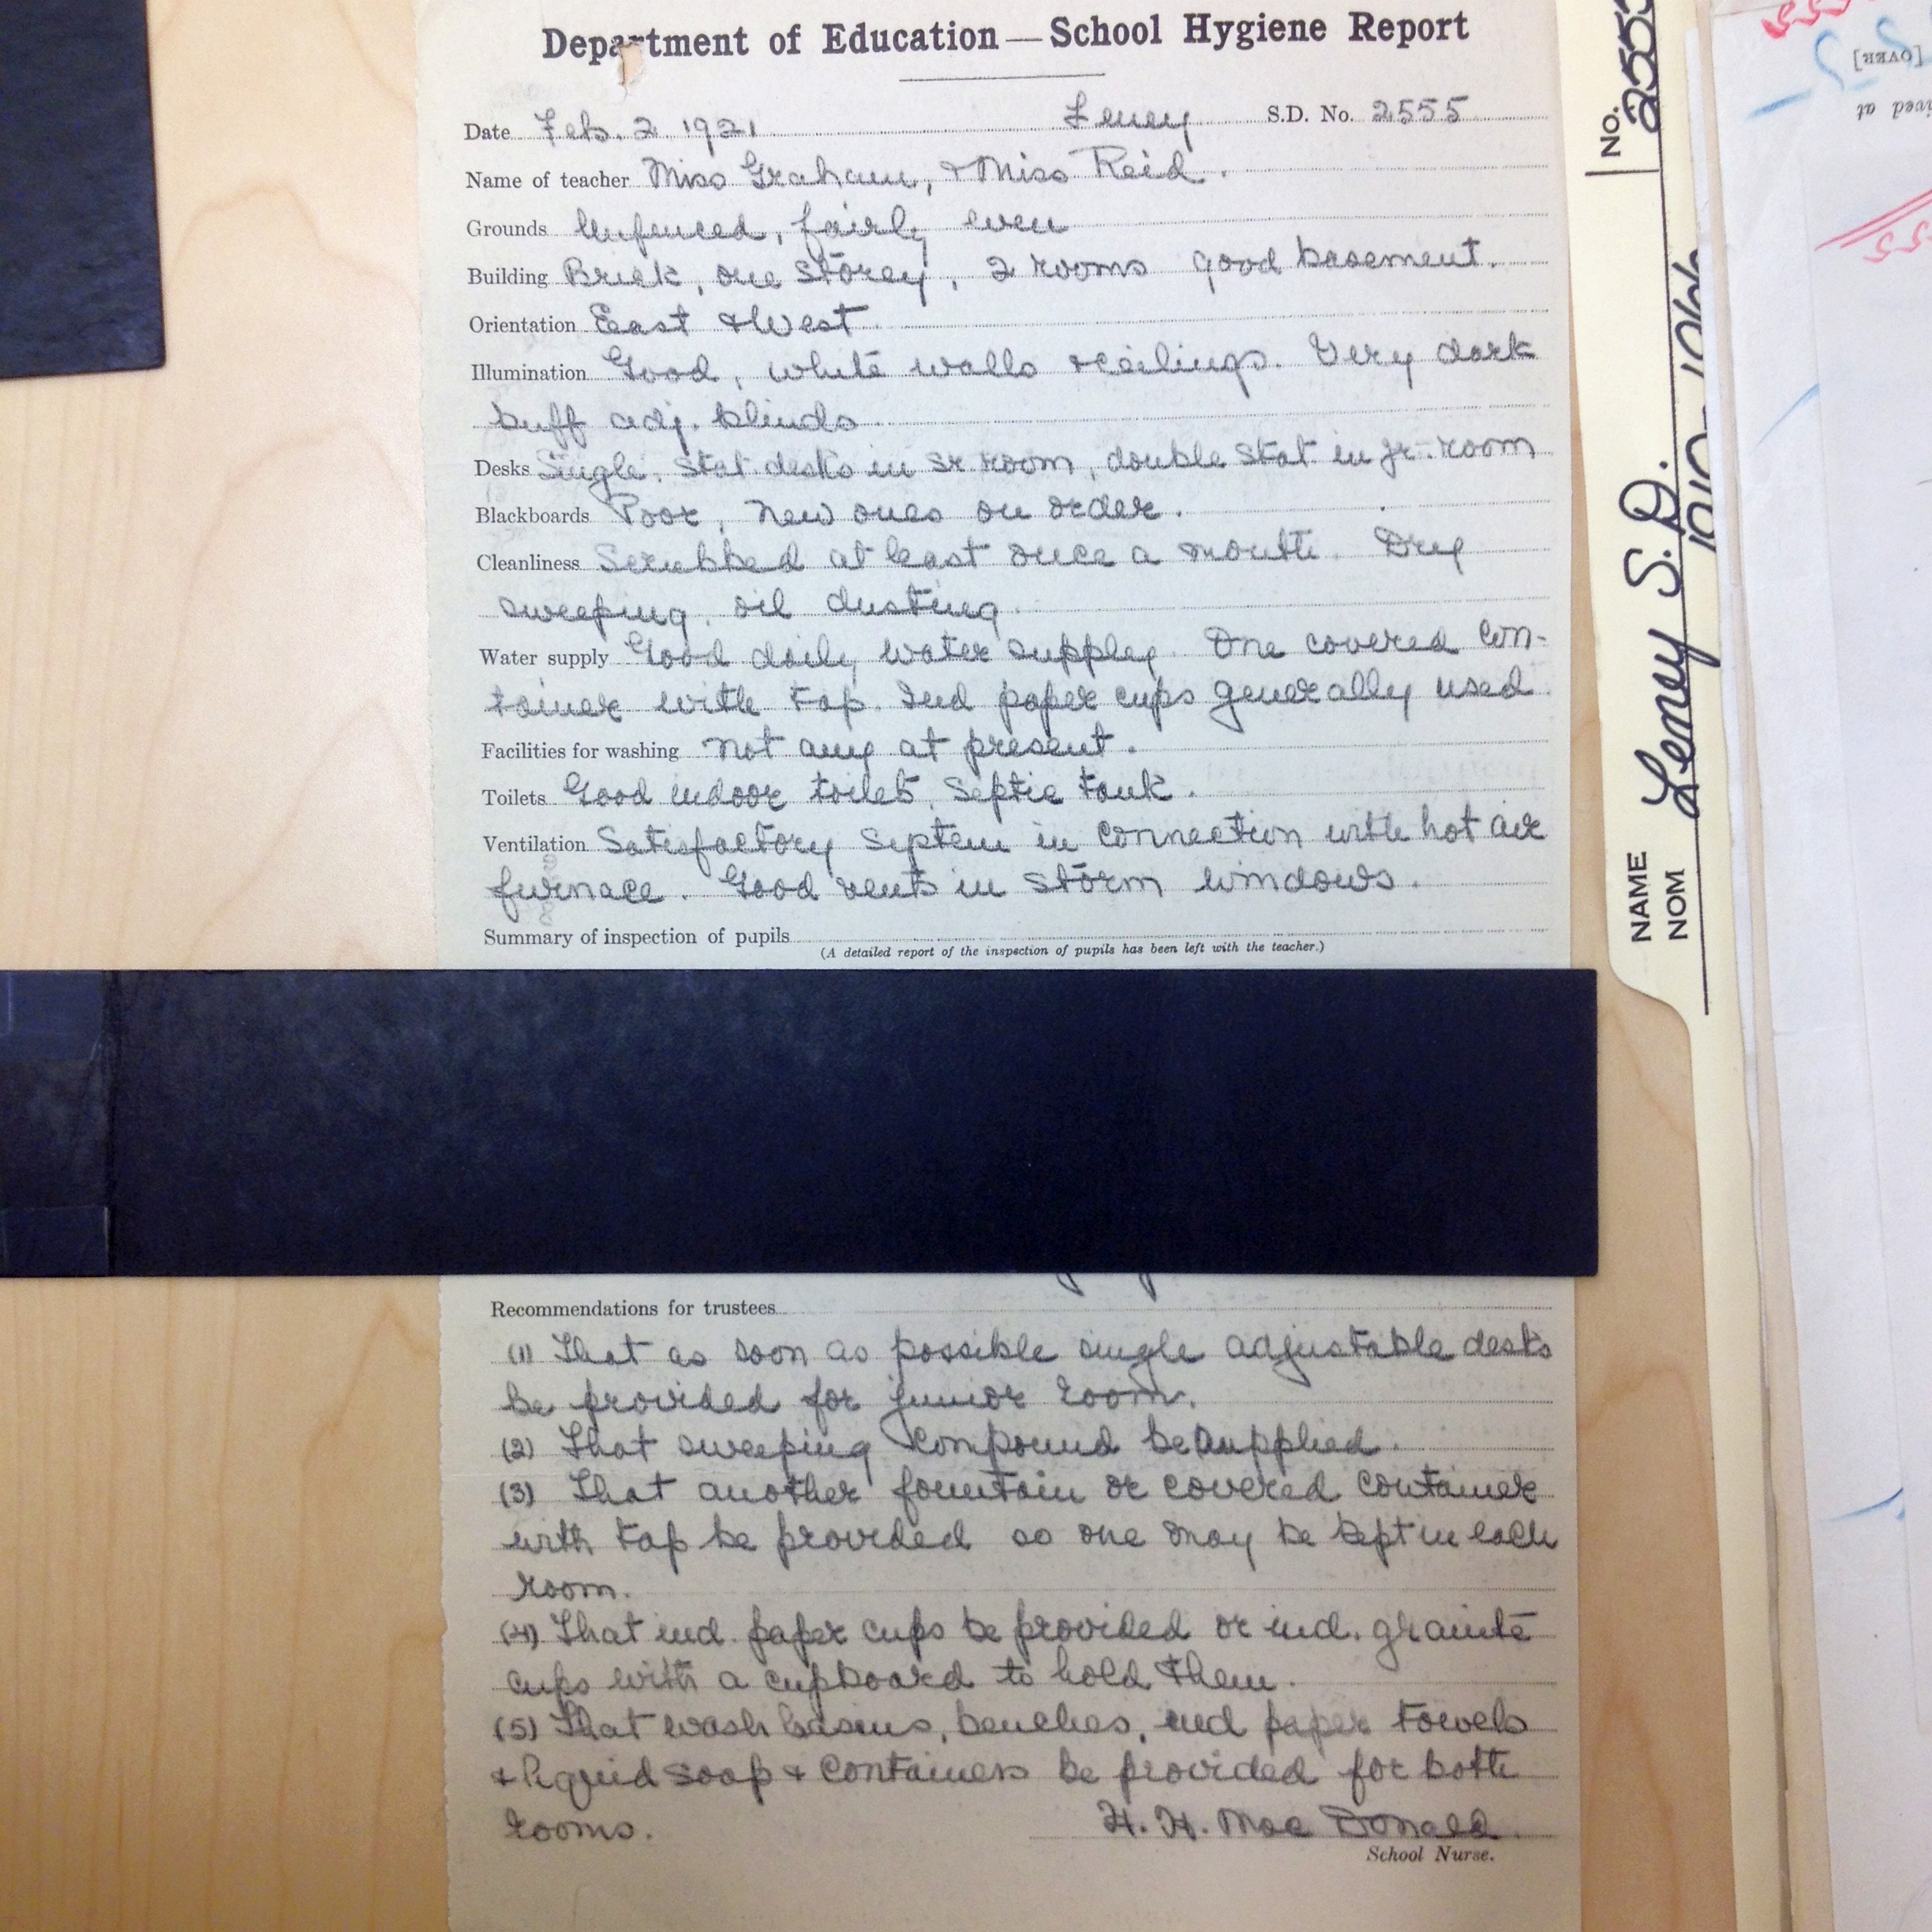 Department of Education — School Hygiene Report
Date Feb. 2 1921 Leney S.D. No. 2555
Name of teacher Miss Graham, & Miss Reid.
Grounds Unfenced, fairly even
Building Brick, one storey, 2 rooms good basement.
Orientation East & West.
Illumination Good, white walls & ceilings. Very dark
buff adj. blinds
Desks Single, stat desks in sr room, double stat in jr. room
Blackboards Poor, new ones on order.
Cleanliness Scrubbed at least once a month. Dry
sweeping, oil dusting.
Water supply Good daily water supply. One covered con-
tainer with tap. Ind paper cups generally used.
Facilities for washing not any at present.
Toilets Good indoor toilets, Septic tank.
Ventilation Satisfactory System in connection with hot air
furnace. Good vents in storm windows.
Summary of inspection of pupils
(A detailed report of the inspection of pupils has been left with the teacher.)
Recommendations for trustees
(1) That as soon as possible single adjustable desks
be provided for junior room.
(2) That sweeping compound be supplied.
(3) That another fountain or covered container
with tap be provided so one may be kept in each
room.
(4) That ind. paper cups be provided or ind. granite
cups with a cupboard to hold them.
(5) That wash basins, benches, ind paper towels
& liquid soap & containers be provided for both
rooms. H. H. Mac Donald
School Nurse.
NAME
NOM
Leney S. D.
NO.
2555
[OVER]